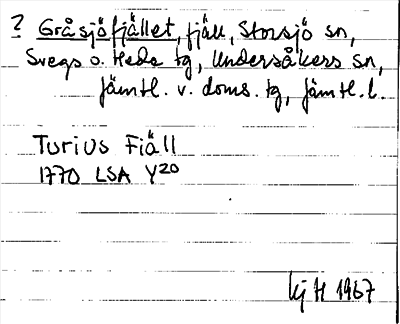 ? Gråsjöfjället, fjäll, Storsjö sn,
Svegs o. Hede tg, Undersåkers sn,
Jämtl. v. doms. tg, Jämtl. l.
Turius Fiäll
1770 LSA Y20
H 1967